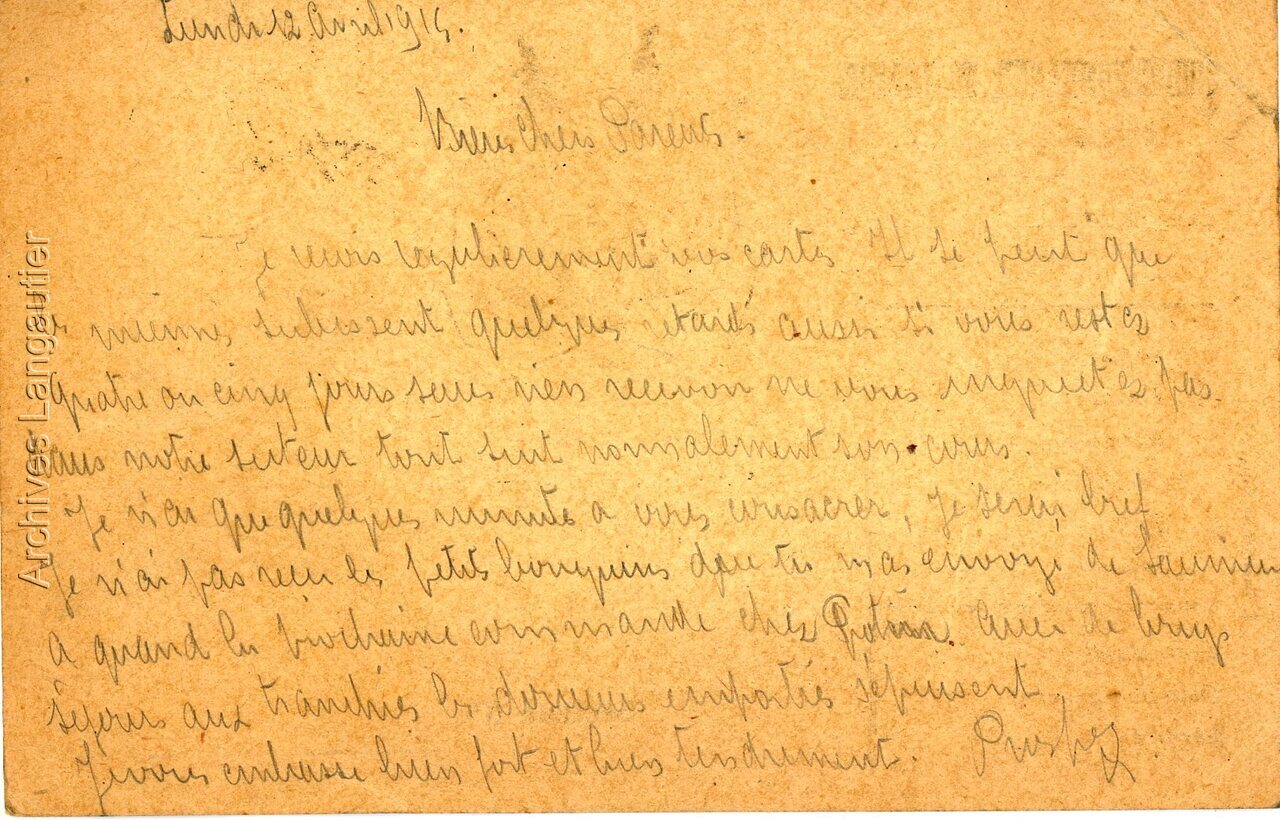 Lundi 12 Avril 1915.
Biens chers Parents.
Je reçois regulierement vos cartes. Il se peut que
les miennes subissent quelques retards aussi si vous restez
quatre ou cinq jours sans rien recevoir ne vous inquietez pas.
Dans notre secteur tout suit normalement son cours.
Je n'ai que quelques minutes a vous consacrer, je serai bref
Je n'ai pas reçu les petits bouquins que tu m'as envoyé de Saumur
a quand la prochaine commande chez Potin. avec de longs
séjours aux tranchées les denrées emportées s'épuisent.
Je vous embrasse bien fort et bien tendrement. Prosper
Archives Langautier